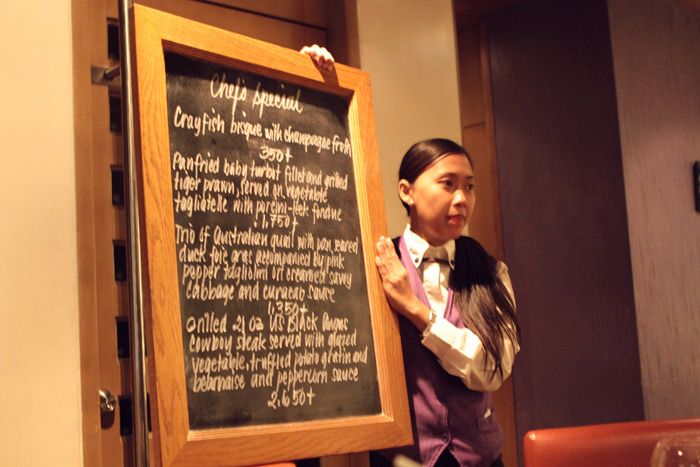 Chef's Special
Crayfish bisque with champagne froth
350+
Panfried baby turbot fillet and grilled
tiger prawn, served on vegetable
tagliatelle with porcini-leek fondue
1,750+
Trio of Australian quail with pan seared
duck foie gras accompanied by pink
pepper tagliolini on creamed savoy
cabbage and curacao sauce
1,350+
Grilled 21 oz US Black Angus
cowboy steak served with glazed
vegetable, truffled potato gratin and
bearnaise and peppercorn sauce
2,650+